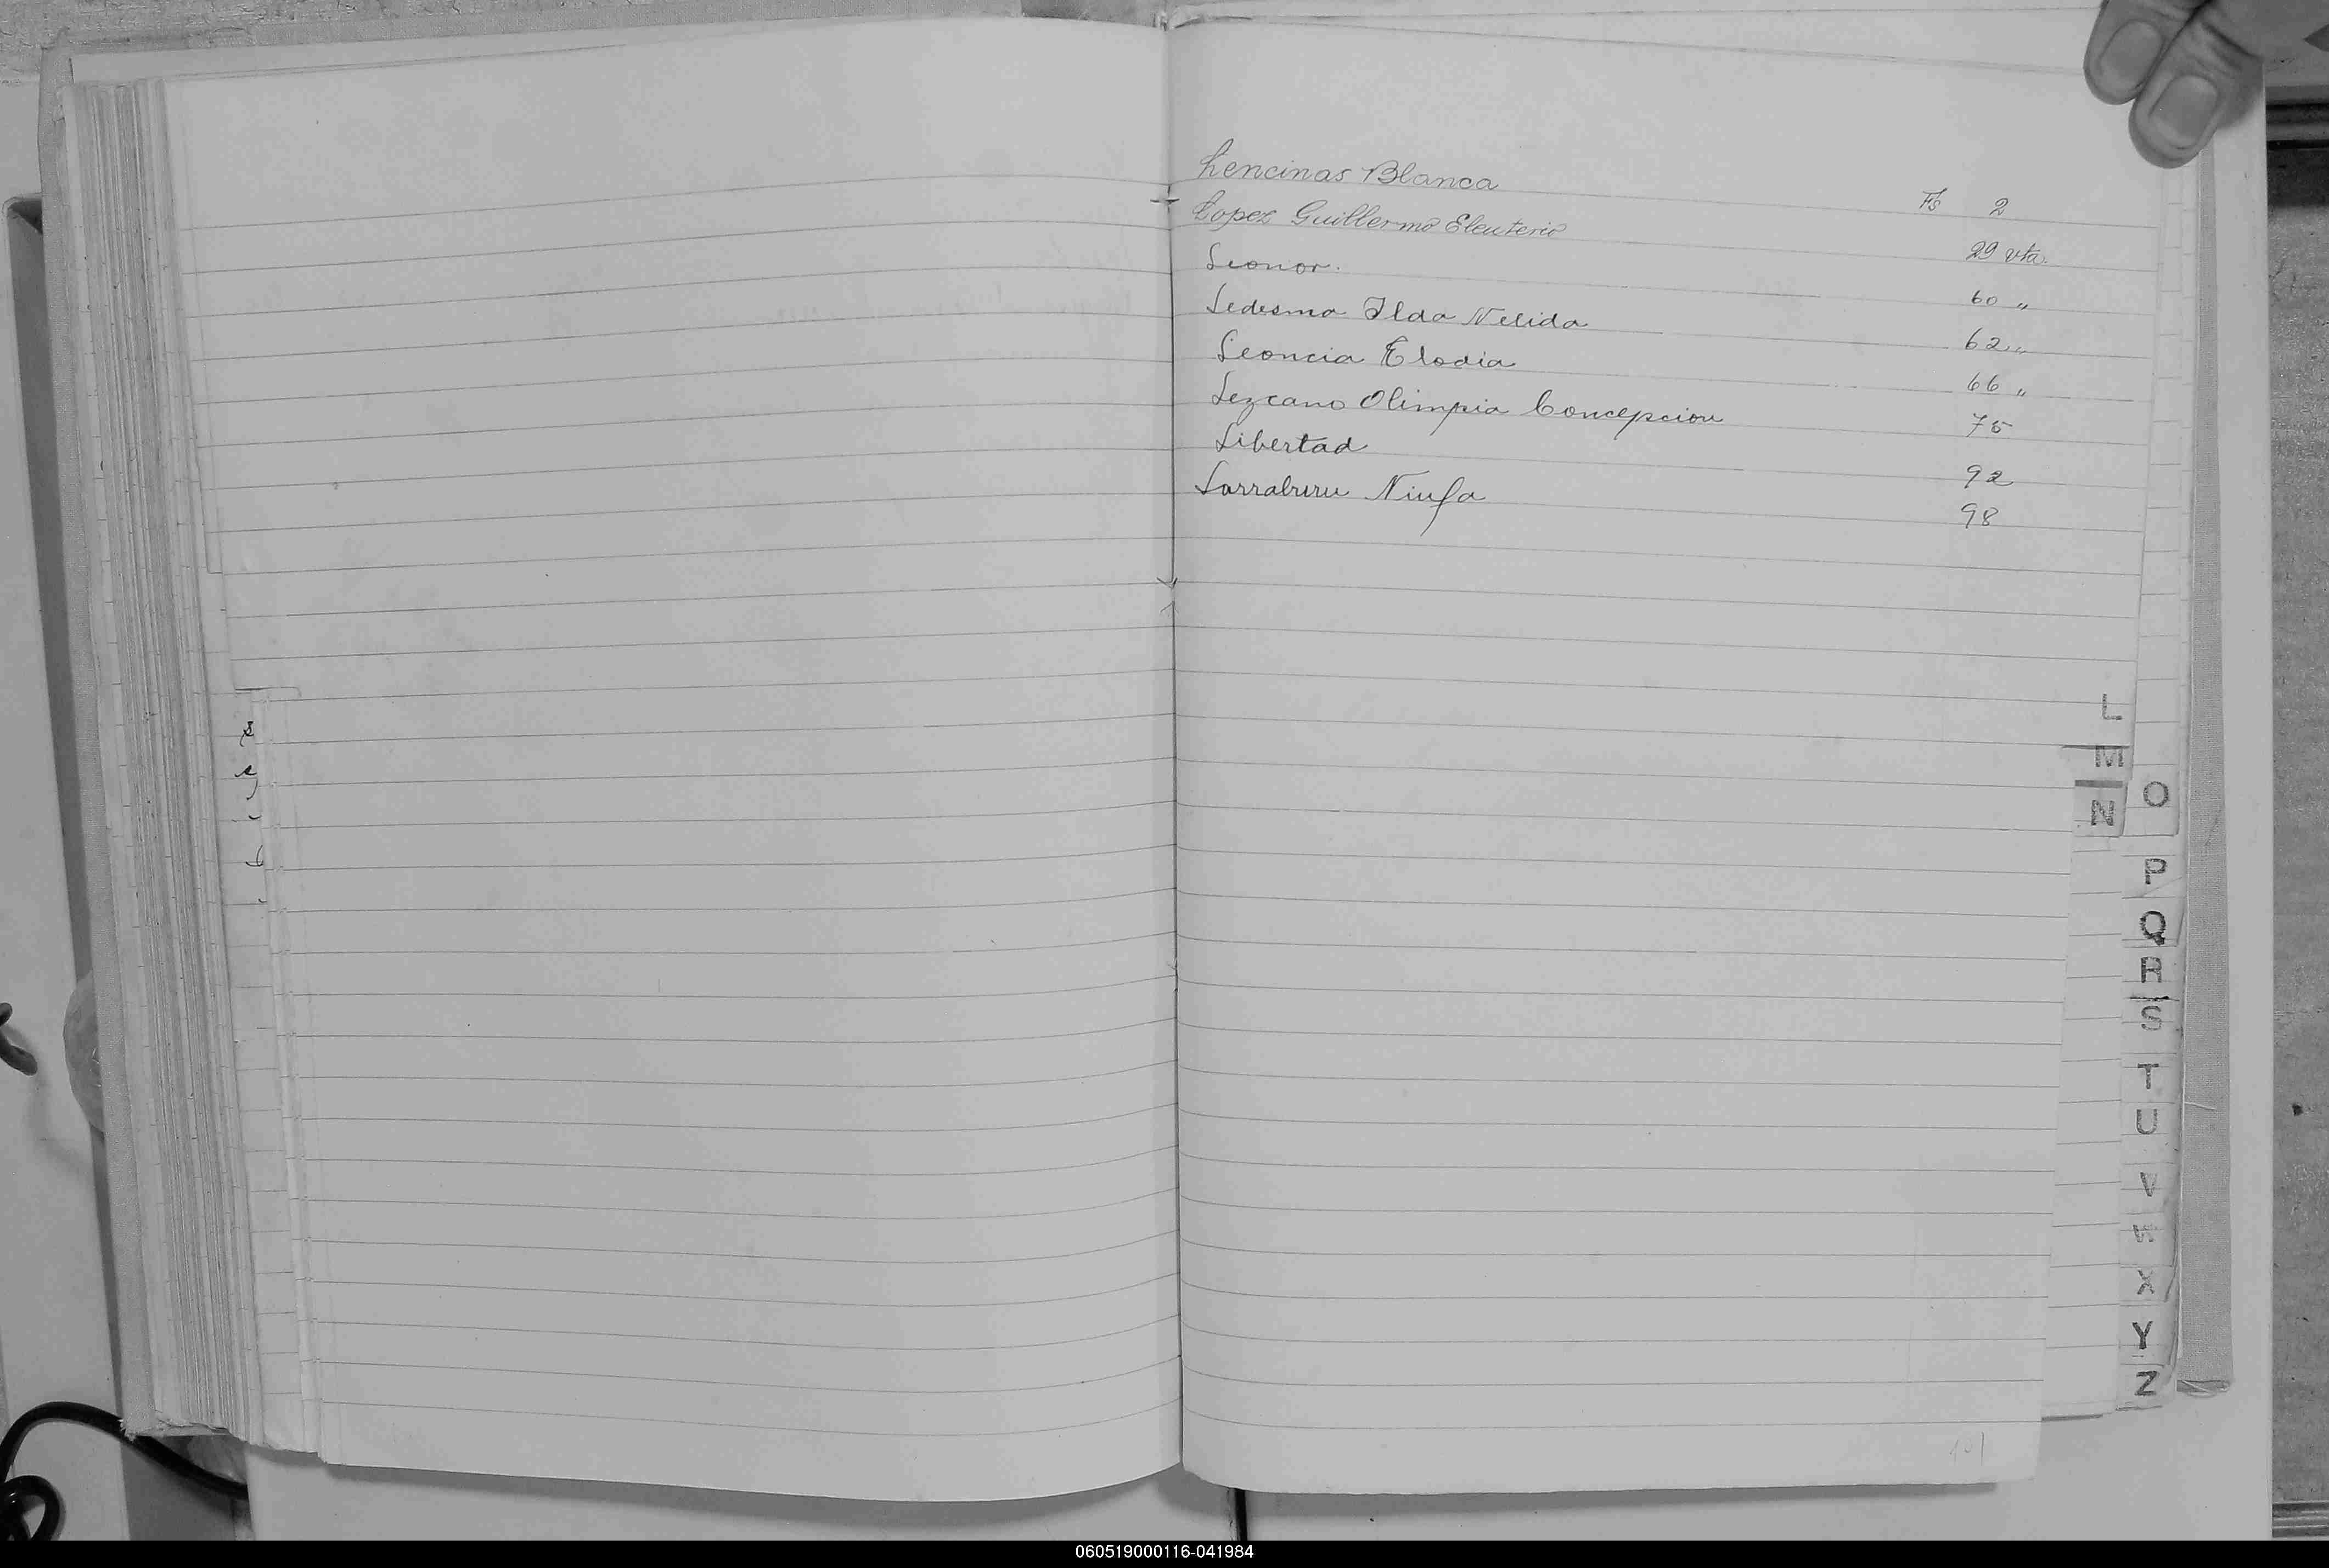 Lencinas Blanca Fs 2
Lopez Guillermo Eleuterio 29 vta.
Leonor. 60 "
Ledesma Ilda Nelida 62 "
Leoncia Elodia 66 "
Lezcano Olimpia Concepcion 75
Libertad 92
Larraburu Ninfa 98
L
M
N
O
P
Q
R
S
T
U
V
W
X
Y
Z
060519000116-041984